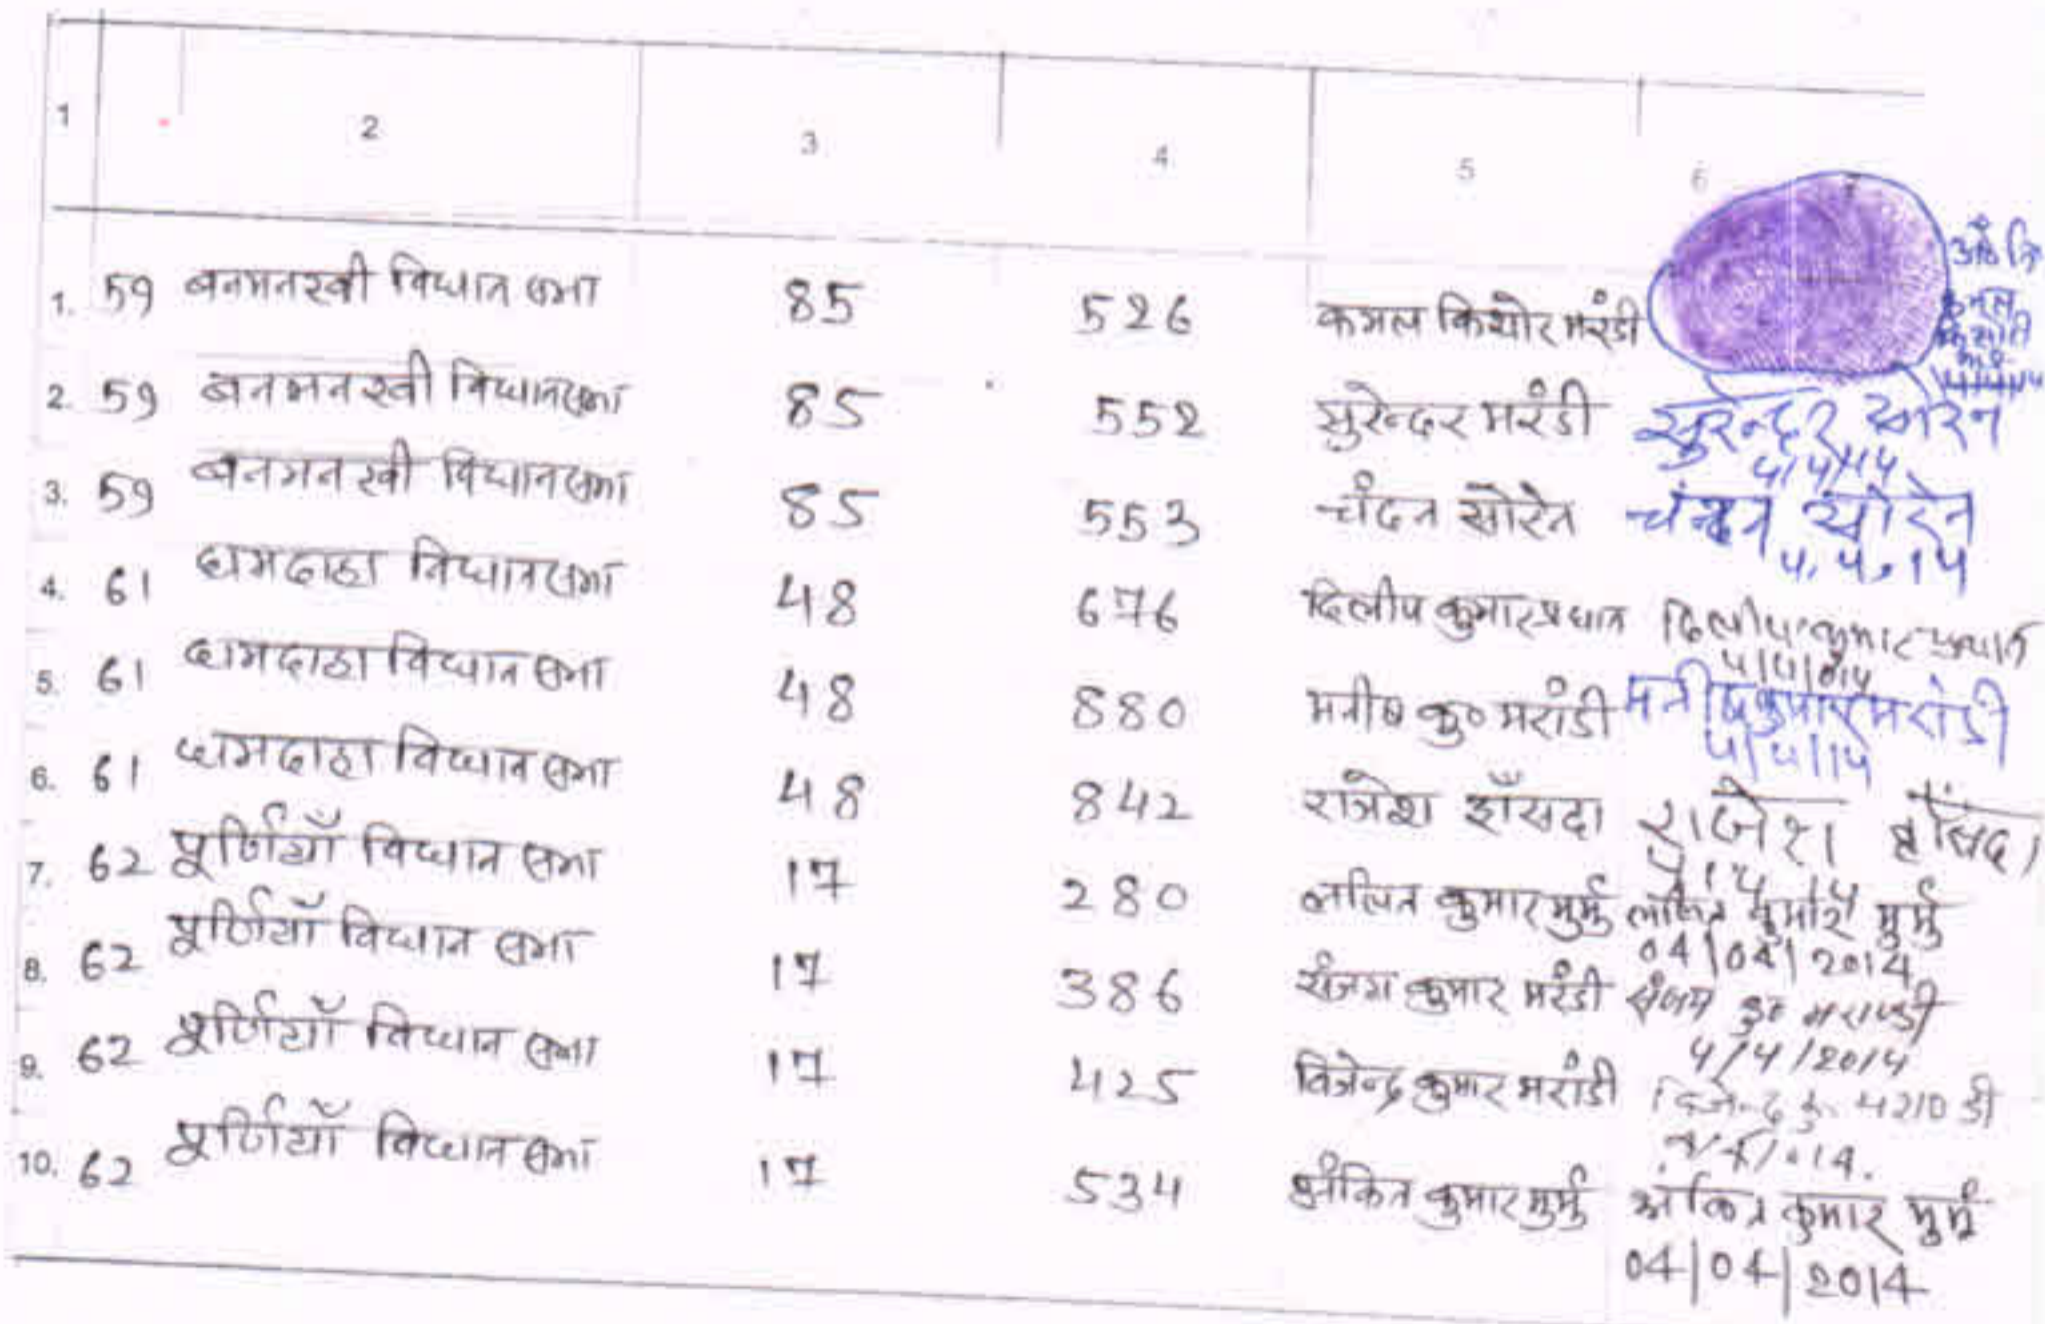 1 2 3 4 5 6 7
1. 59 बनमनखी विधान सभा 85 526 कमल किशोर मरंडी
2. 59 बनमनखी विधानसभा 85 552 सुरेन्दर मरंडी सुरेन्दर सोरेन
4/4/14
3. 59 बनमनखी विधानसभा 85 553 चंदन सोरेन चंन्दन सोरेन
4.4.14
4. 61 धामदाहा विधानसभा 48 676 दिलीप कुमार प्रधान दिलीप कुमार प्रधान
5. 61 धामदाहा विधान सभा 48 880 मनीष कु० मरांडी मनीष कुमार मरांडी
4/4/14
6. 61 धामदाहा विधान सभा 48 842 राजेश हाँसदा राजेश हाँसदा
7. 62 पूर्णियाँ विधान सभा 17 280 ललित कुमार मुर्मु ललित कुमार मुर्मु
04/04/2014
8. 62 पूर्णियाँ विधान सभा 17 386 संजय कुमार मरंडी संजय कु० मराण्डी
4/4/2014
9. 62 पूर्णियाँ विधान सभा 17 425 विजेन्द्र कुमार मरांडी
10. 62 पूर्णियाँ विधान सभा 17 534 अंकित कुमार मुर्मु अंकित कुमार मुर्मु
04/04/2014